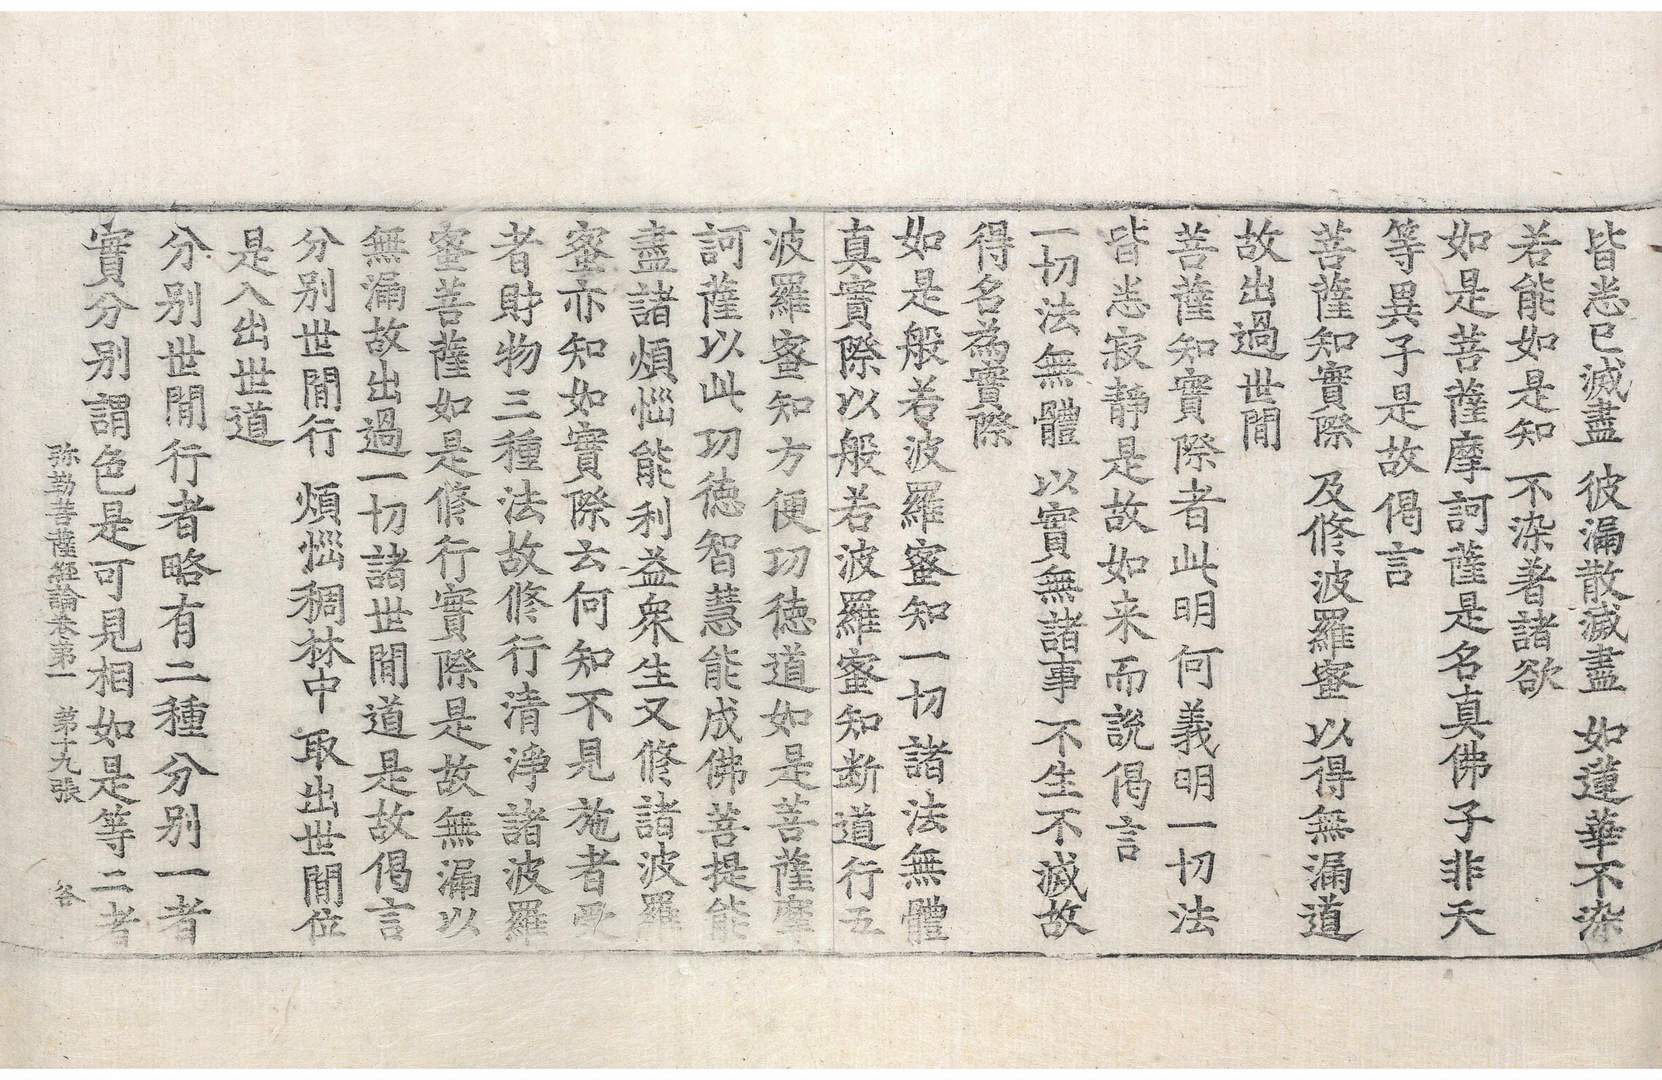 皆悉已滅盡 彼漏散滅盡 如蓮華不染
若能如是知 不染著諸欲
如是菩薩摩訶薩是名真佛子非天
等異子是故偈言
菩薩知實際 及修波羅蜜 以得無漏道
故出過世間
菩薩知實際者此明何義明一切法
皆悉寂靜是故如来而說偈言
一切法無體 以實無諸事 不生不滅故
得名為實際
如是般若波羅蜜知一切諸法無體
真實際以般若波羅蜜知断道行五
波羅蜜知方便功德道如是菩薩摩
訶薩以此功德智慧能成佛菩提能
盡諸煩惱能利益衆生又修諸波羅
蜜亦知如實際云何知不見施者受
者財物三種法故修行清淨諸波羅
蜜菩薩如是修行實際是故無漏以
無漏故出過一切諸世間道是故偈言
分别世間行 煩惱稠林中 取出世間位
是入出世道
分别世間行者略有二種分别一者
實分别謂色是可見相如是等二者
弥勒菩薩經論卷第一 第十九張 谷